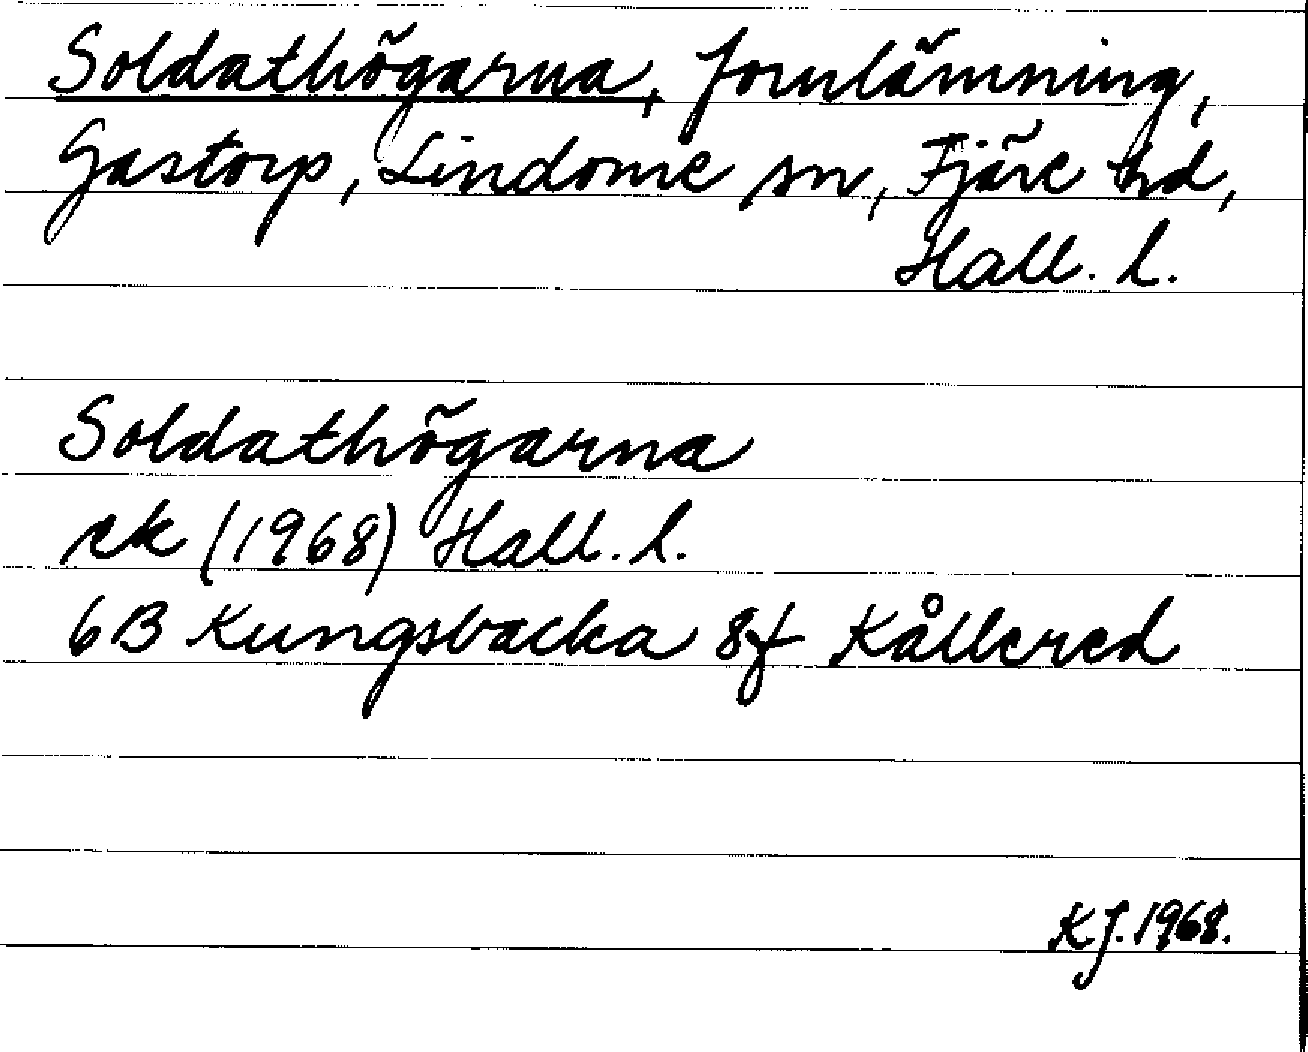 Soldathögarna, fornlämning,
Gastorp, Lindome sn, Fjäre hd,
Hall. l.
Soldathögarna
ek (1968) Hall. l.
6B Kungsbacka 8f Kållered
KJ. 1968.